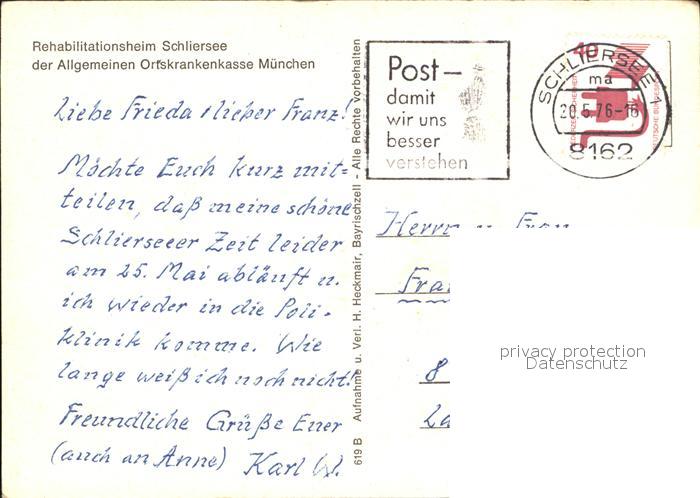 Rehabilitationsheim Schliersee
der Allgemeinen Ortskrankenkasse München
Liebe Frieda, lieber Franz!
Möchte Euch kurz mit=
teilen, daß meine schöne
Schlierseeer Zeit leider
am 25. Mai abläuft u.
ich wieder in die Poli-
klinik komme. Wie
lange weiß ich noch nicht!
Freundliche Grüße Euer
(auch an Anne) Karl W.
619 B Aufnahme u. Verl. H. Heckmair, Bayrischzell - Alle Rechte vorbehalten
Post-
damit
wir uns
besser
verstehen
SCHLIERSEE 1
ma
20.5.76-16
8162
40
DEUTSCHE BUNDESPOST
Herrn u. Frau
8
privacy protection
Datenschutz